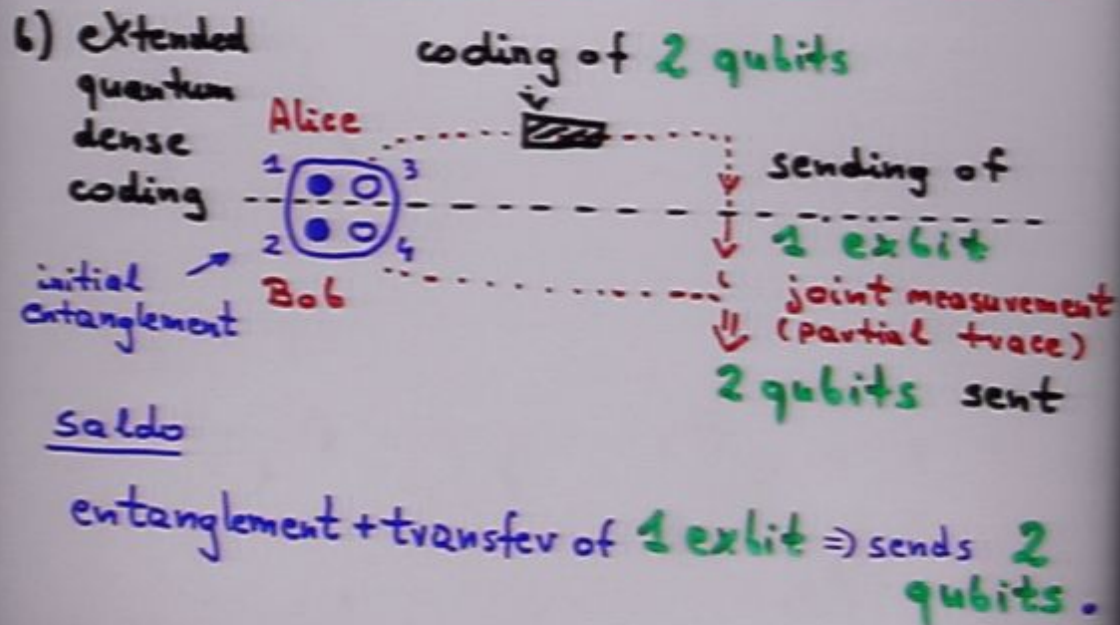 6) extended
quantum
dense
coding
coding of 2 qubits
Alice
1
3
2
4
Bob
initial
entanglement
sending of
1 exbit
joint measurement
(partial trace)
2 qubits sent
saldo
entanglement + transfer of 1 exbit => sends 2
qubits.